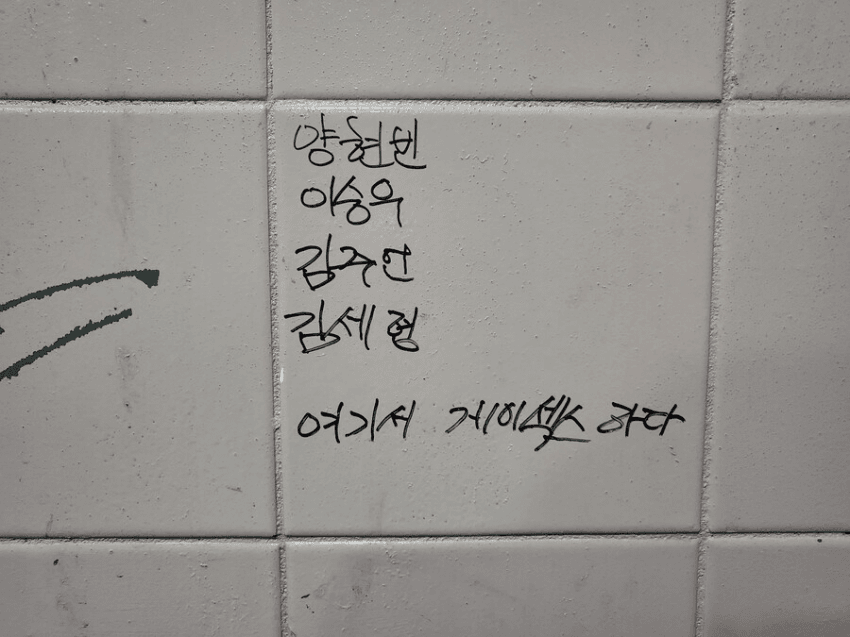 양현빈
이승우
김주안
김세형
여기서 게이섹스 하다